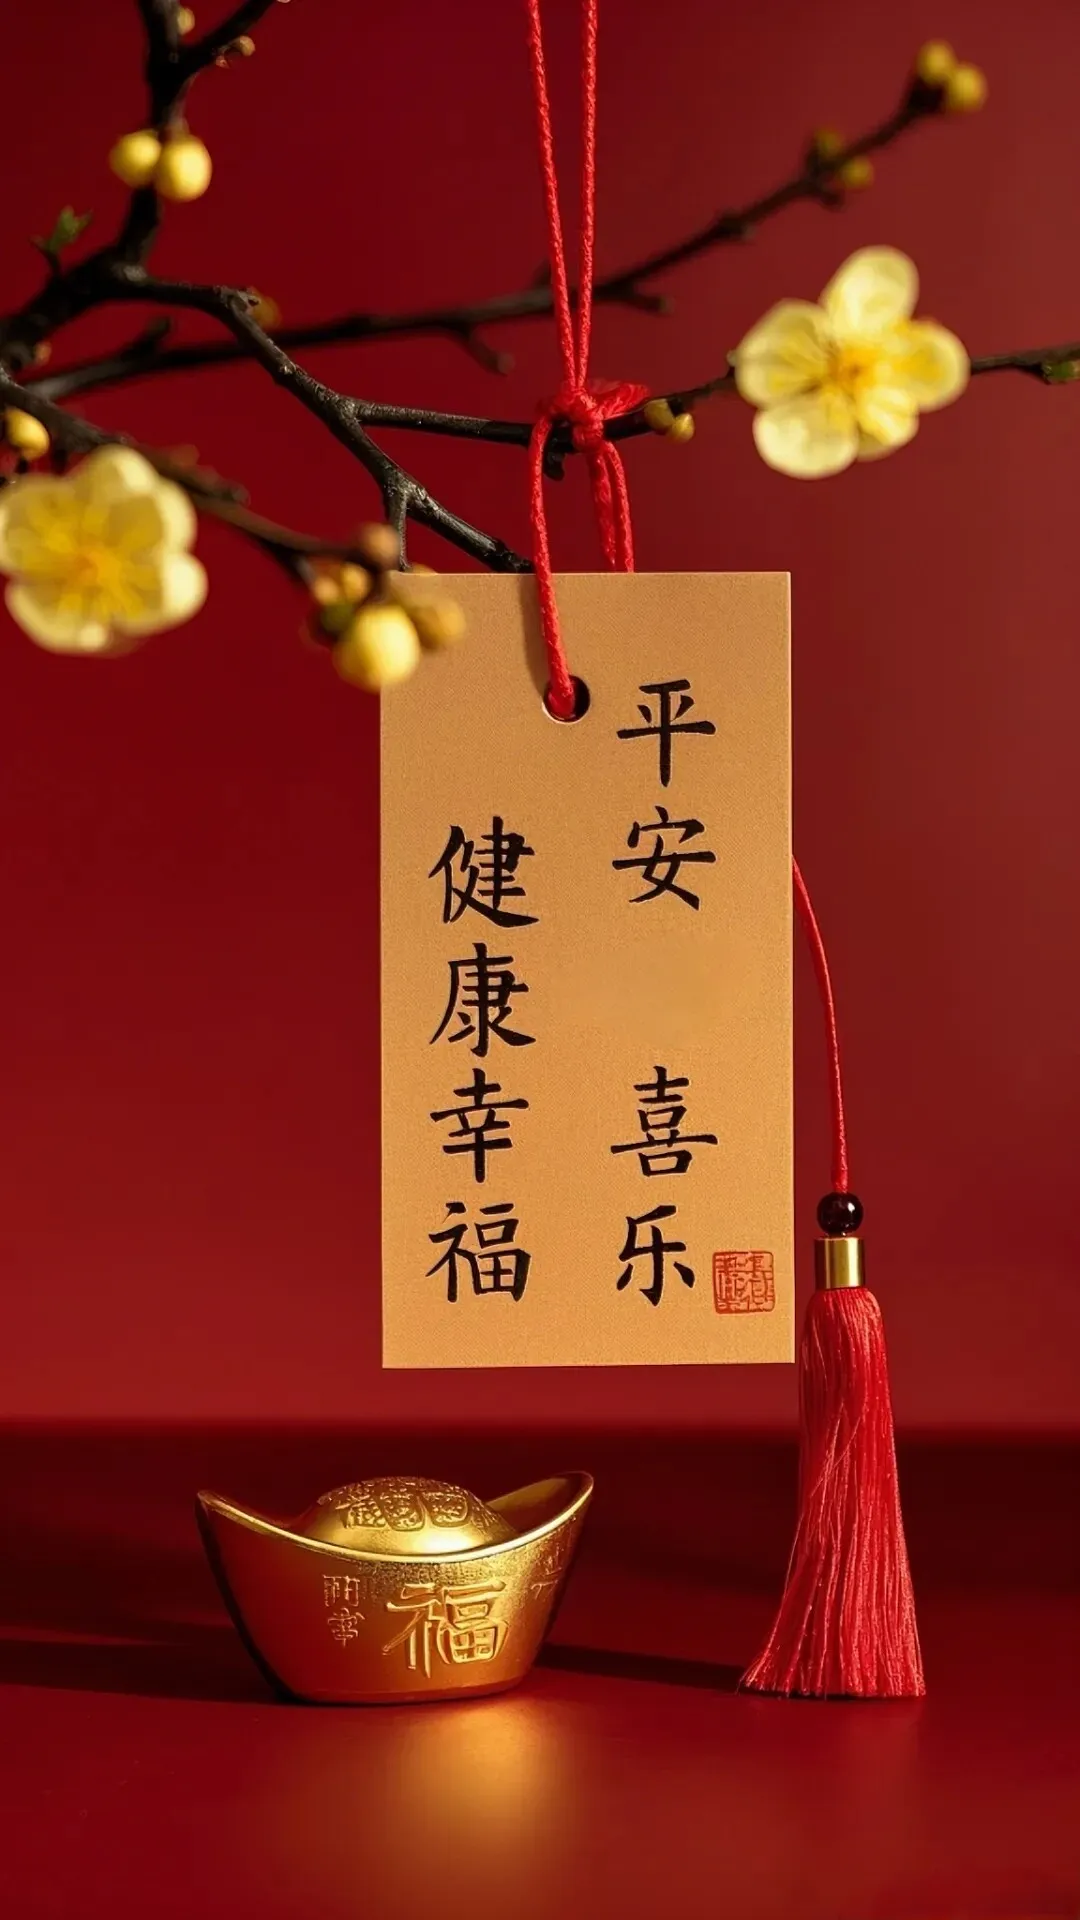 平安 喜乐
健康幸福
福